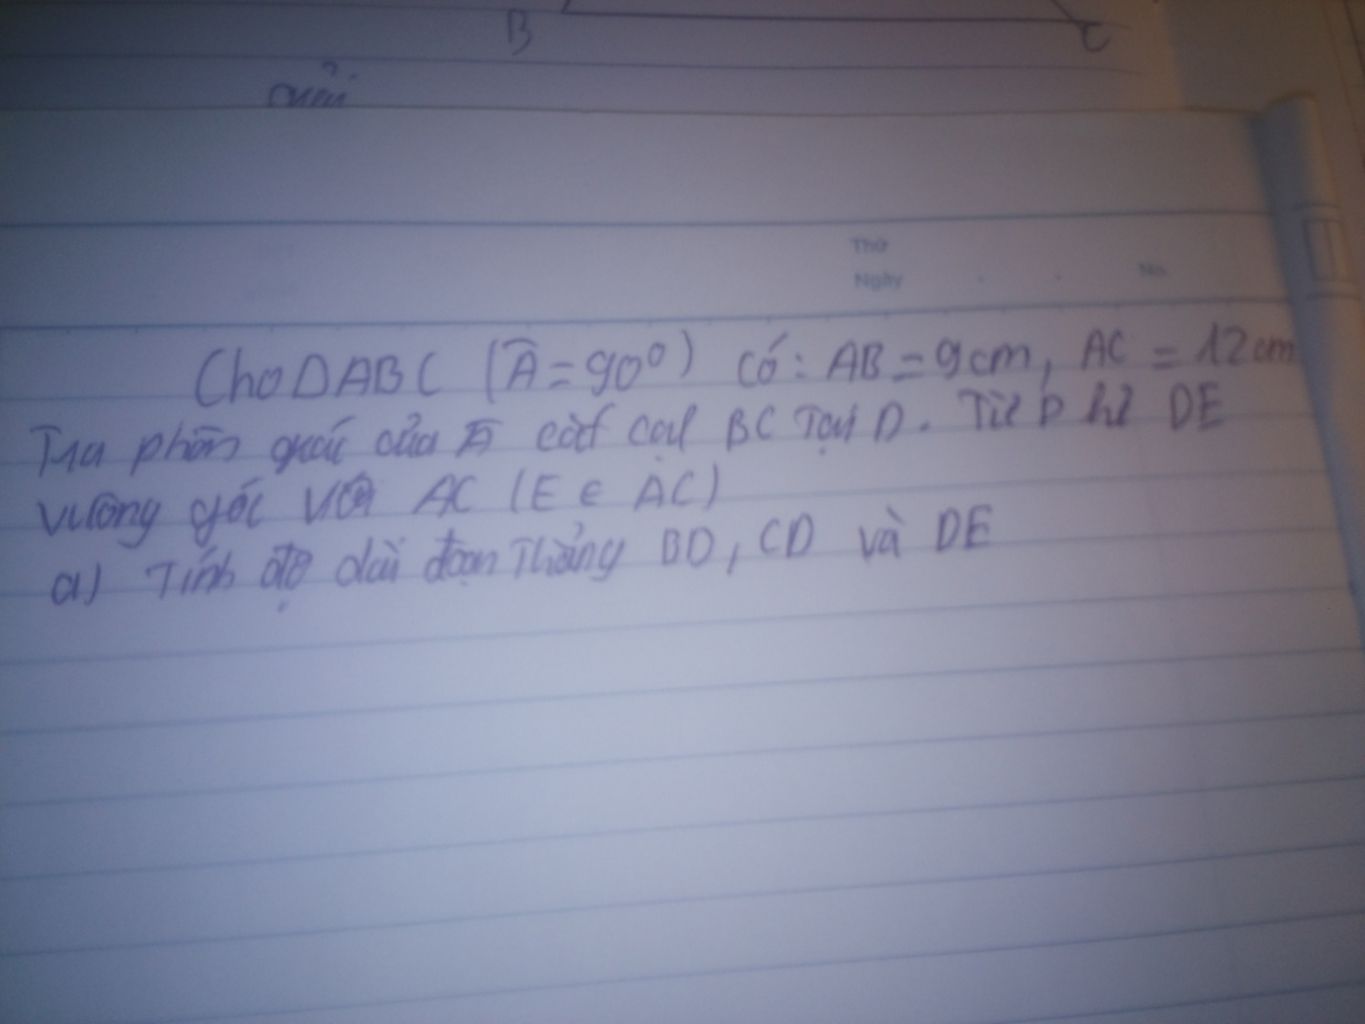 B C
Thứ
Ngày No.
Cho ΔABC (Â = 90°) có: AB = 9cm, AC = 12cm
Tia phân giác của Â cắt cạnh BC Tại D. Từ D kẻ DE
vuông góc với AC (E ∈ AC)
a) Tính độ dài đoạn Thẳng BD, CD và DE